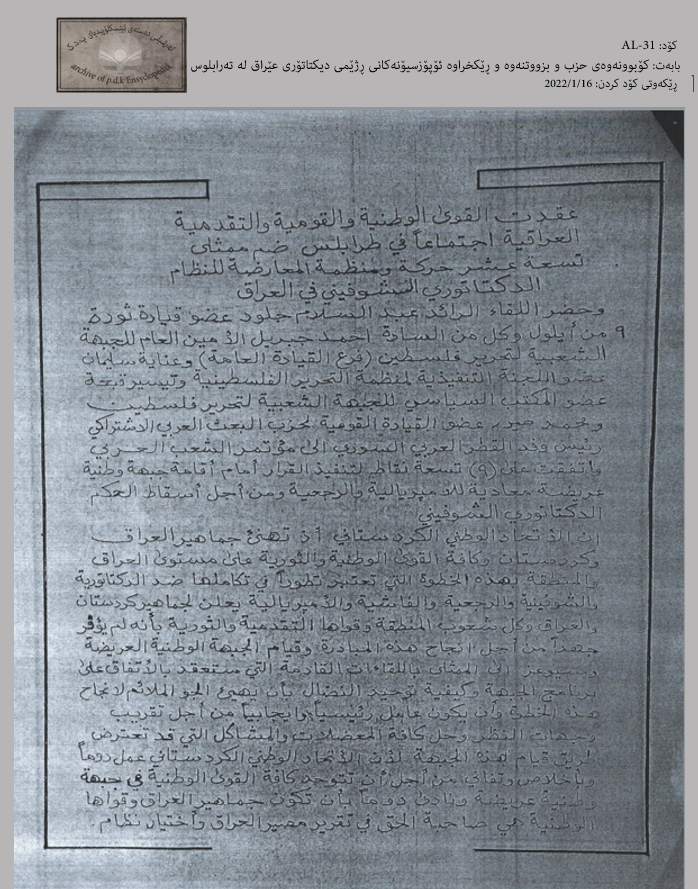 کۆد: AL-31
بابەت: کۆبوونەوەی حزب و بزووتنەوە و ڕێکخراوە ئۆپۆزسیۆنەکانی ڕژێمی دیکتاتۆری عێراق لە تەرابلوس
ڕێکەوتی کۆد کردن: 2022/1/16
archive of p.d.k Ensyclopedia
عقدت القوى الوطنية والقومية والتقدمية
العراقية اجتماعاً في طرابلس ضم ممثلي
تسعة عشر حركة ومنظمة المعارضة للنظام
الدكتاتوري الشوفيني في العراق
وحضر اللقاء الرائد عبد السلام جلود عضو قيادة ثورة
٩ من أيلول وكل من السادة احمد جبريل الأمين العام للجبهة
الشعبية لتحرير فلسطين (فرع القيادة العامة) وعناية سليمان
عضو اللجنة التنفيذية لمنظمة التحرير الفلسطينية وتيسير قبعة
عضو المكتب السياسي للجبهة الشعبية لتحرير فلسطين
ومحمد عضو القيادة القومية لحزب البعث العربي الاشتراكي
رئيس وفد القطر العربي السوري الى مؤتمر الشعب العربي
واتفقت على (٩) تسعة نقاط لتنفيذ القرار أمام أقامة جبهة وطنية
عريضة معادية للامبريالية والرجعية ومن أجل أسقاط الحكم
الدكتاتوري الشوفيني
ان الاتحاد الوطني الكردستاني أذ تهنئ جماهير العراق
وكردستان وكافة القوى الوطنية والثورية على مستوى العراق
والمنطقة بهذه الخطوة التي تعتبر تطوراً في تكاملها ضد الدكتاتورية
والشوفينية والرجعية والفاشية والأمبريالية يعلن لجماهير كردستان
والعراق وكل شعوب المنطقة وقواها التقدمية والثورية بأنه لم يؤفر
جهداً من أجل انجاح هذه المبادرة وقيام الجبهة الوطنية العريضة
وسيوعز الى باللقاءات القادمة التي ستعقد بالأتفاق على
برنامج الجبهة وكيفية توحيد النضال بأن تهيئ الجو الملائم لانجاح
هذه الخطوة وأن يكون عامل رئيسياً وايجابياً من أجل تقريب
وجهات النظر وحل كافة المعضلات والمشاكل التي قد تعترض
طريق قيام هذه الجبهة لأن الأتحاد الوطني الكردستاني عمل دوماً
وبأخلاص وتفاني من أجل أن تتوحد كافة القوى الوطنية في جبهة
وطنية عريضة ونادى دوماً بأن تكون جماهير العراق وقواها
الوطنية هي صاحبة الحق في تقرير مصير العراق وأختيار نظام